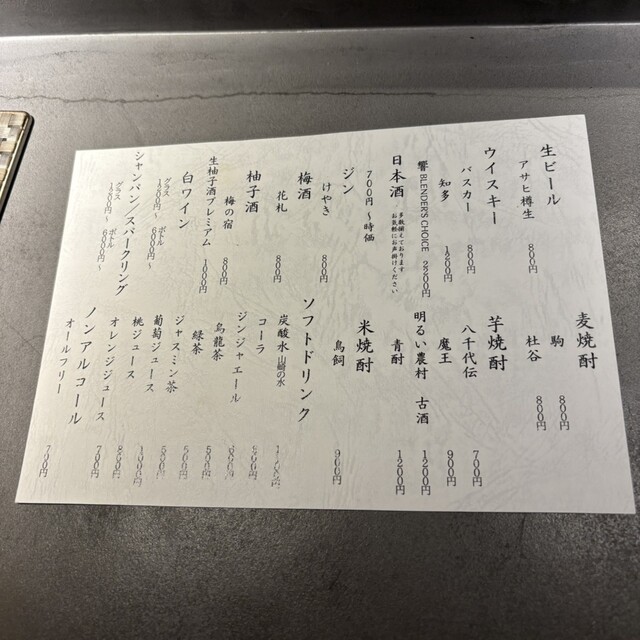 生ビール
アサヒ樽生 800円
ウイスキー
バスカー 800円
知多 1200円
響 BLENDER'S CHOICE 2200円
日本酒
多数揃えております
お気軽にお声掛けください
700円～時価
ジン
けやき 800円
梅酒
花札 800円
柚子酒
梅の宿 800円
生柚子酒プレミアム 1000円
白ワイン
グラス ボトル
1800円～ 6000円～
シャンパン／スパークリング
グラス ボトル
1800円～ 6000円～
麦焼酎
駒 800円
杜谷 800円
芋焼酎
八千代伝 700円
魔王 900円
明るい農村 古酒 1200円
青酎 1200円
米焼酎
鳥飼 900円
ソフトドリンク
炭酸水 山崎の水
コーラ
ジンジャエール
烏龍茶 500円
緑茶 500円
ジャスミン茶 500円
葡萄ジュース
桃ジュース
オレンジジュース 700円
ノンアルコール
オールフリー 700円